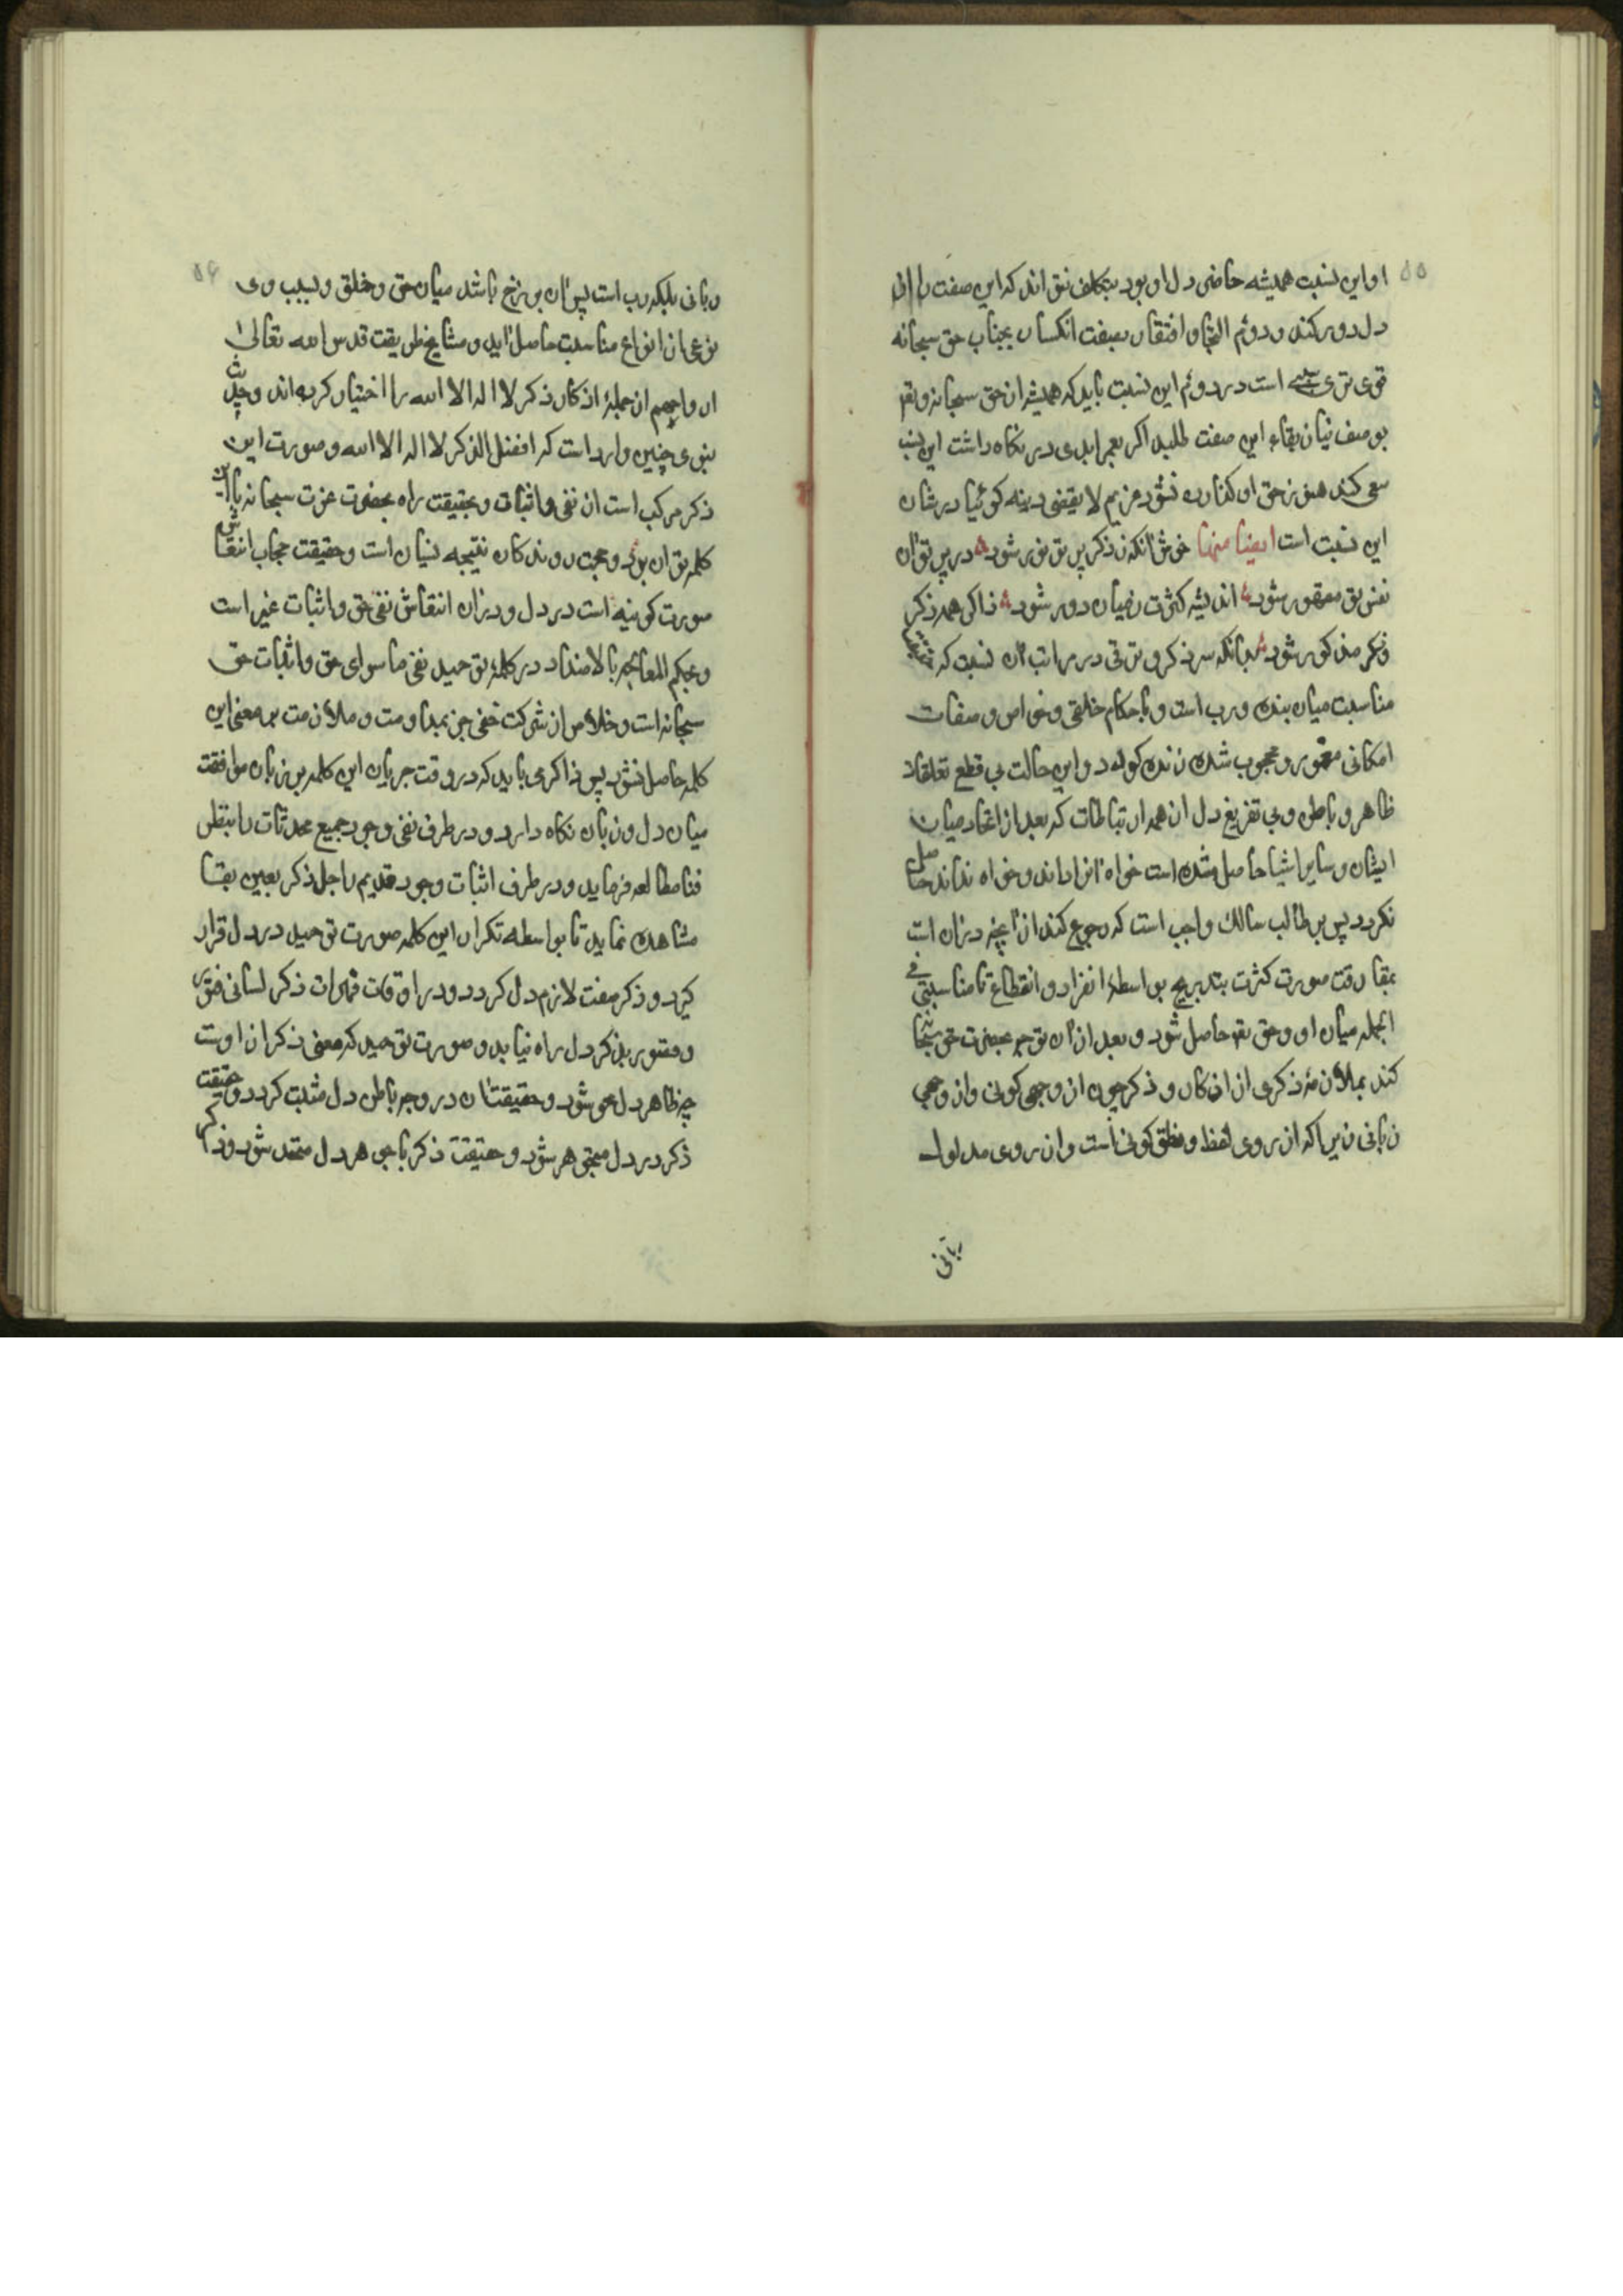 ۵۵
او این نسبت همیشه حاضر دل او بود بتکلف نتواند که این صفت را از
دل دور کند و دوام التجا و افتقار بصفت انکسار بجناب حق سبحانه
قوی‌ترین سببی است در دوام این نسبت باید که همیشه از حق سبحانه و تعم
بوصف نیاز بقاء این صفت طلبد اکر بعمر ابدی در نکاه داشت این نسبت
سعی کند هنوز حق او کذارده نشود غریم لا یقضی دینه کوئیا در شان
این نسبت است ایضا منها خوش آنکه ز ذکر پر تو نور شود در پرتو آن
نفس تو مقهور شود اندیشه کثرت ز میان دور شود ذاکر همه ذکر
و ذکر مذکور شود بدانکه سر ذکر و ترقی در مراتب آن نسبت که
مناسبت میان بنده و رب است و باحکام خلقی و خواص و صفات
امکانی مقهور و محجوب شده زنده کردد و این حالت بی قطع تعلقات
ظاهر و باطن و بی تفریغ دل از همه ارتباطات که بعد از اتحاد میان
ایشان و سایر اشیا حاصل شده است خواه آنرا داند و خواه نداند حاصل
نکردد پس بر طالب سالک واجب است که رجوع کند از آنچه در آن است
بمفارقت صورت کثرت بتدریج بواسطهٔ انفراد و انقطاع تا مناسبتی فی
الجمله میان او و حق تعم حاصل شود و بعد از آن توجه بحضرت حق سبحانه
کند بملازمهٔ ذکری از اذکار و ذکر چون از وجهی کونی و از وجهی
ربانی زیرا که از روی لفظ و نطق کونی است و از روی مدلول
ربانی
۵۶
ربانی بلکه رب است پس آن برزخ باشد میان حق و خلق و بسبب وی
نوعی از انواع مناسبت حاصل آید و مشایخ طریقت قدس الله تعالی
ارواحهم از جملهٔ اذکار ذکر لا اله الا الله را اختیار کرده‌اند و حدیث
نبوی چنین وارد است که افضل الذکر لا اله الا الله و صورت این
ذکر مرکب است از نفی و اثبات و بحقیقت راه بحضرت عزت سبحانه باین
کلمه توان برد و حجب روندکان نتیجه نسیان است و حقیقت حجاب انتقاش
صورت کونیه است در دل و در آن انتقاش نفی حق و اثبات غیر است
و بحکم المعالجه بالاضداد در کلمهٔ توحید نفی ما سوای حق و اثبات حق
سبحانه است و خلاص از شرکت خفی جز بمداومت و ملازمت بر معنی این
کلمه حاصل نشود پس ذاکر می باید که در وقت جریان این کلمه بر زبان موافقت
میان دل و زبان نکاه دارد و در طرف نفی وجود جمیع محدثات را بنظر
فنا مطالعه فرماید و در طرف اثبات وجود قدیم را جل ذکره بعین بقا
مشاهده نماید تا بواسطه تکرار این کلمه صورت توحید در دل قرار
کیرد و ذکر صفت لازم دل کردد و در اوقات فترات ذکر لسانی فتوری
و قصور بذکر دل راه نیابد و صورت توحید که معنی ذکر از اوست
چه ظاهر دل محو شود و حقیقت آن در وجه باطن دل مثبت کردد و حقیقت
ذکر در دل متجوهر شود و حقیقت ذکر با جوهر دل متحد شود و ذاکر